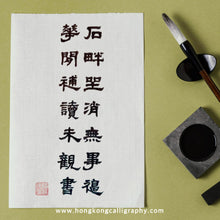 石畔坐消無事福
花間補讀未觀書
www.hongkongcalligraphy.com